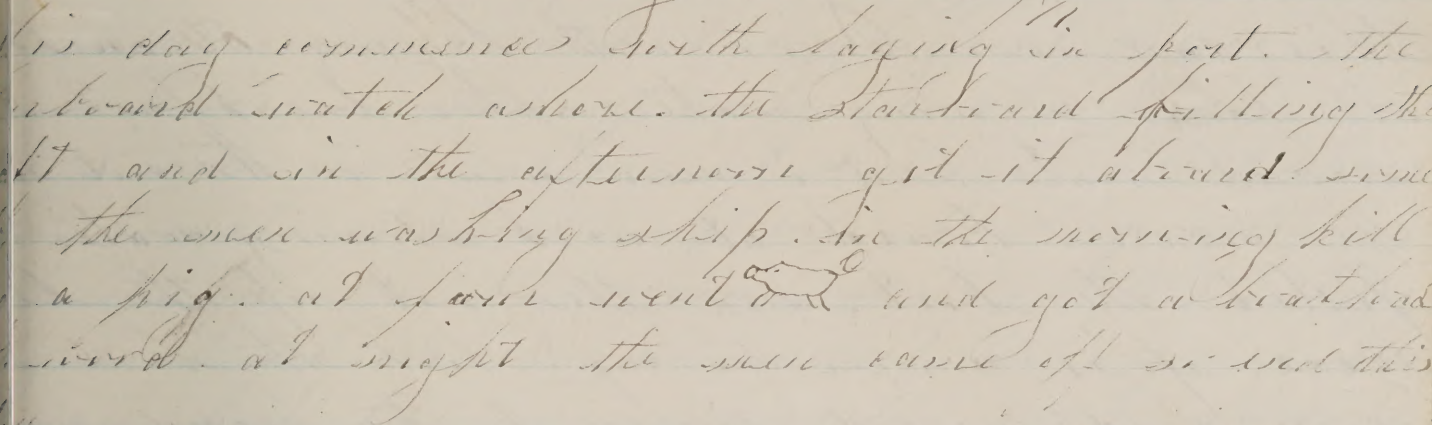 is day commences with laying in port. the
rboard watch ashore. the starboard filling the
and in the afternoon got it aboard some
the men washing ship. in the morning kill
a pig. at four went and got a boat load
wood. at night the men came off so end this